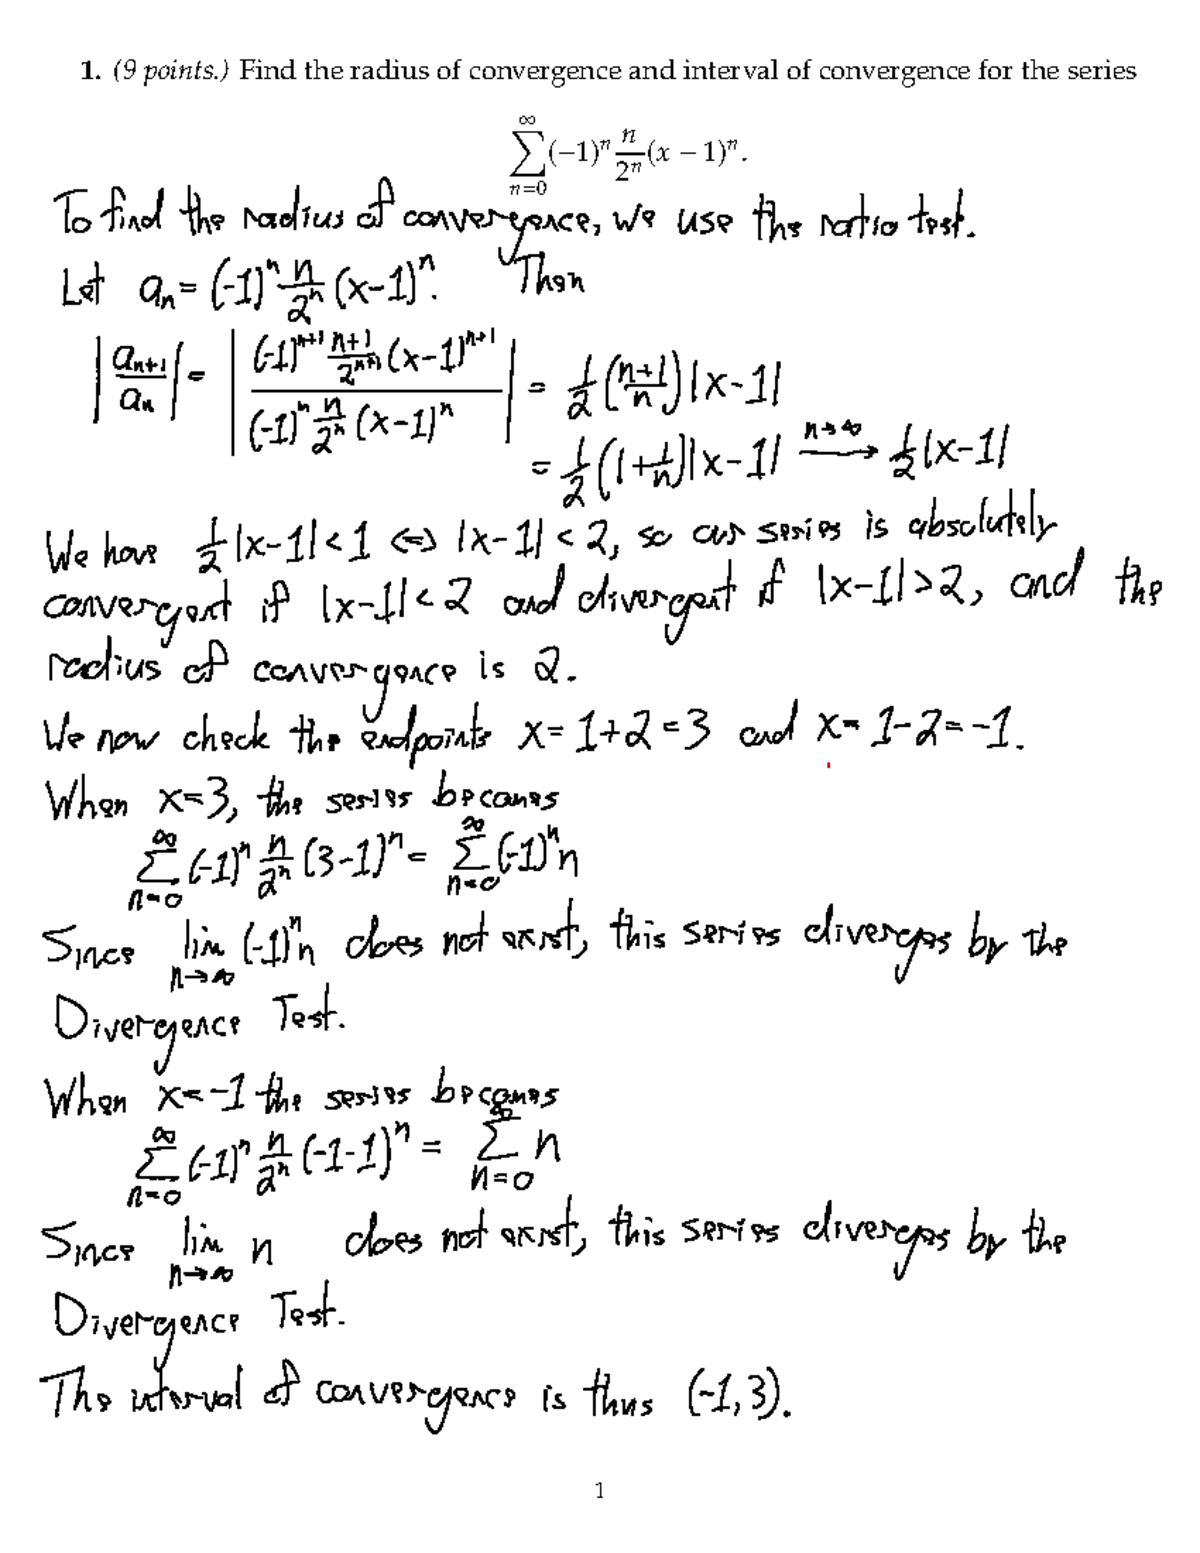 1. (9 points.) Find the radius of convergence and interval of convergence for the series
∑_{n=0}^{∞} (−1)^n n/2^n (x − 1)^n.
To find the radius of convergence, we use the ratio test.
Let a_n = (-1)^n n/2^n (x-1)^n. Then
|a_{n+1}/a_n| = |((-1)^{n+1} (n+1)/2^{n+1} (x-1)^{n+1})/((-1)^n n/2^n (x-1)^n)| = 1/2 ((n+1)/n) |x-1|
= 1/2 (1+1/n) |x-1| —n→∞→ 1/2 |x-1|
We have 1/2 |x-1| < 1 ⇔ |x-1| < 2, so our series is absolutely
convergent if |x-1| < 2 and divergent if |x-1| > 2, and the
radius of convergence is 2.
We now check the endpoints x = 1+2 = 3 and x = 1-2 = -1.
When x=3, the series becomes
∑_{n=0}^{∞} (-1)^n n/2^n (3-1)^n = ∑_{n=0}^{∞} (-1)^n n
Since lim_{n→∞} (-1)^n n does not exist, this series diverges by the
Divergence Test.
When x=-1 the series becomes
∑_{n=0}^{∞} (-1)^n n/2^n (-1-1)^n = ∑_{n=0}^{∞} n
Since lim_{n→∞} n does not exist, this series diverges by the
Divergence Test.
The interval of convergence is thus (-1,3).
1